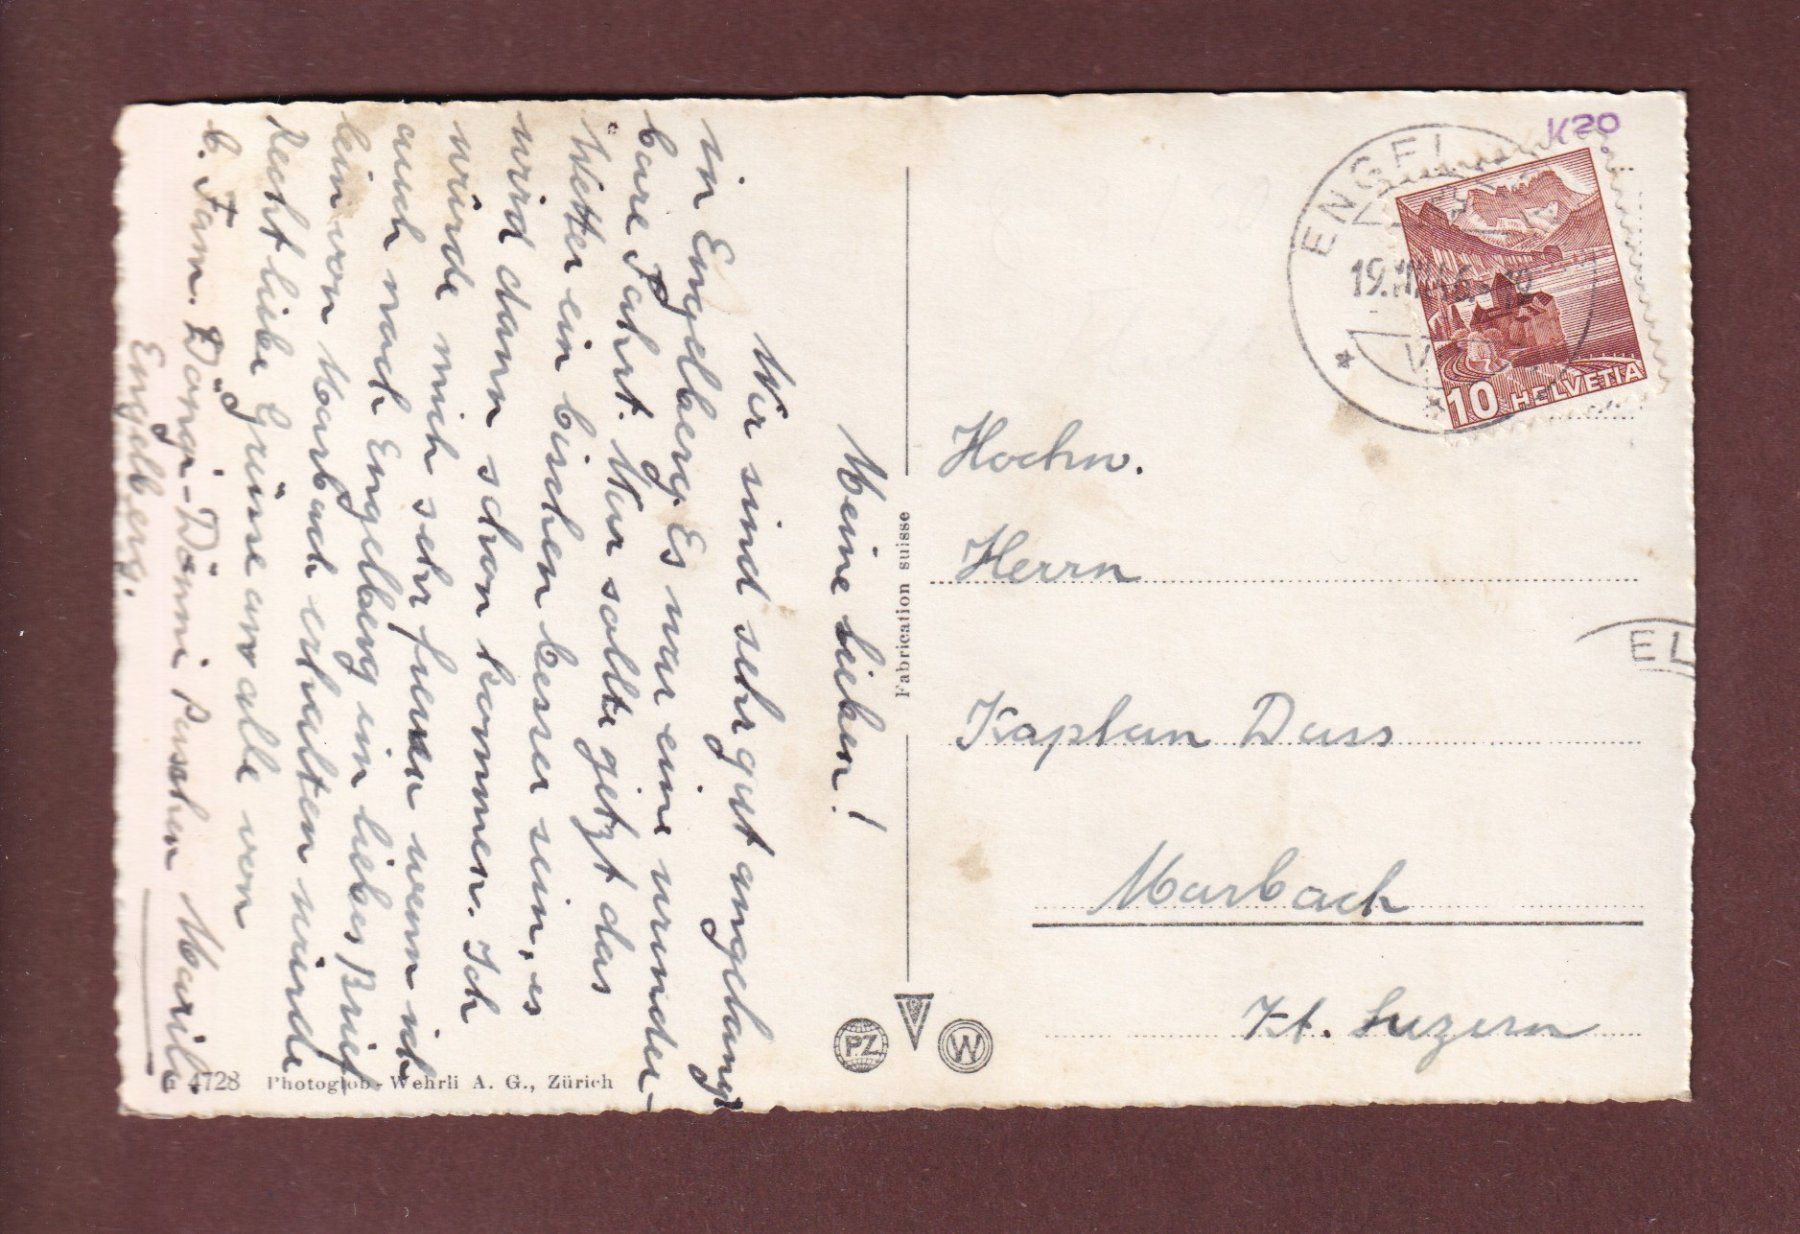 Meine lieben!
Wir sind sehr gut angelangt
in Engelberg. Es war eine wunder-
bare Fahrt. Nur sollte getzt das
Wetter ein bischen besser sein, es
wird dann schon kommen. Ich
würde mich sehr freuen wenn ich
auch nach Engelberg in liebes Brief
lein von Marbach erhalten würde
Recht liebe Grüsse an alle von
b. Fam. Marili.
Engelberg.
4728 Photoglob-Wehrli A. G., Zürich
Fabrication suisse
PZ
W
K20
ENGEL
19.
10 HELVETIA
EL
Hochw.
Herrn
Kaplan Duss
Marbach
Kt. Luzern